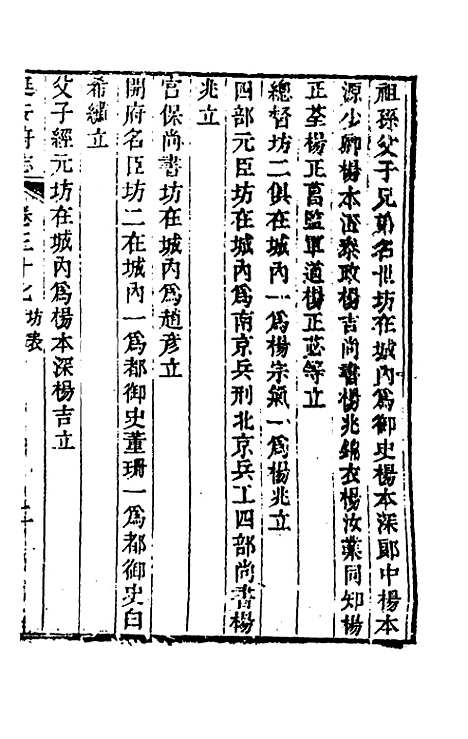 祖孫父子兄弟名世坊在城內爲御史楊本深郞中楊本
源少卿楊本泗叅政楊吉尚書楊兆錦衣楊汝業同知楊
正荃楊正葛監軍道楊正苾等立
總督坊二俱在城內一爲楊宗氣一爲楊兆立
四部元臣坊在城內爲南京兵刑北京兵工四部尚書楊
兆立
宮保尚書坊在城內爲趙彥立
開府名臣坊二在城內一爲都御史董珊一爲都御史白
希繡立
父子經元坊在城內爲楊本深楊吉立
延安府志 卷三十七 坊表